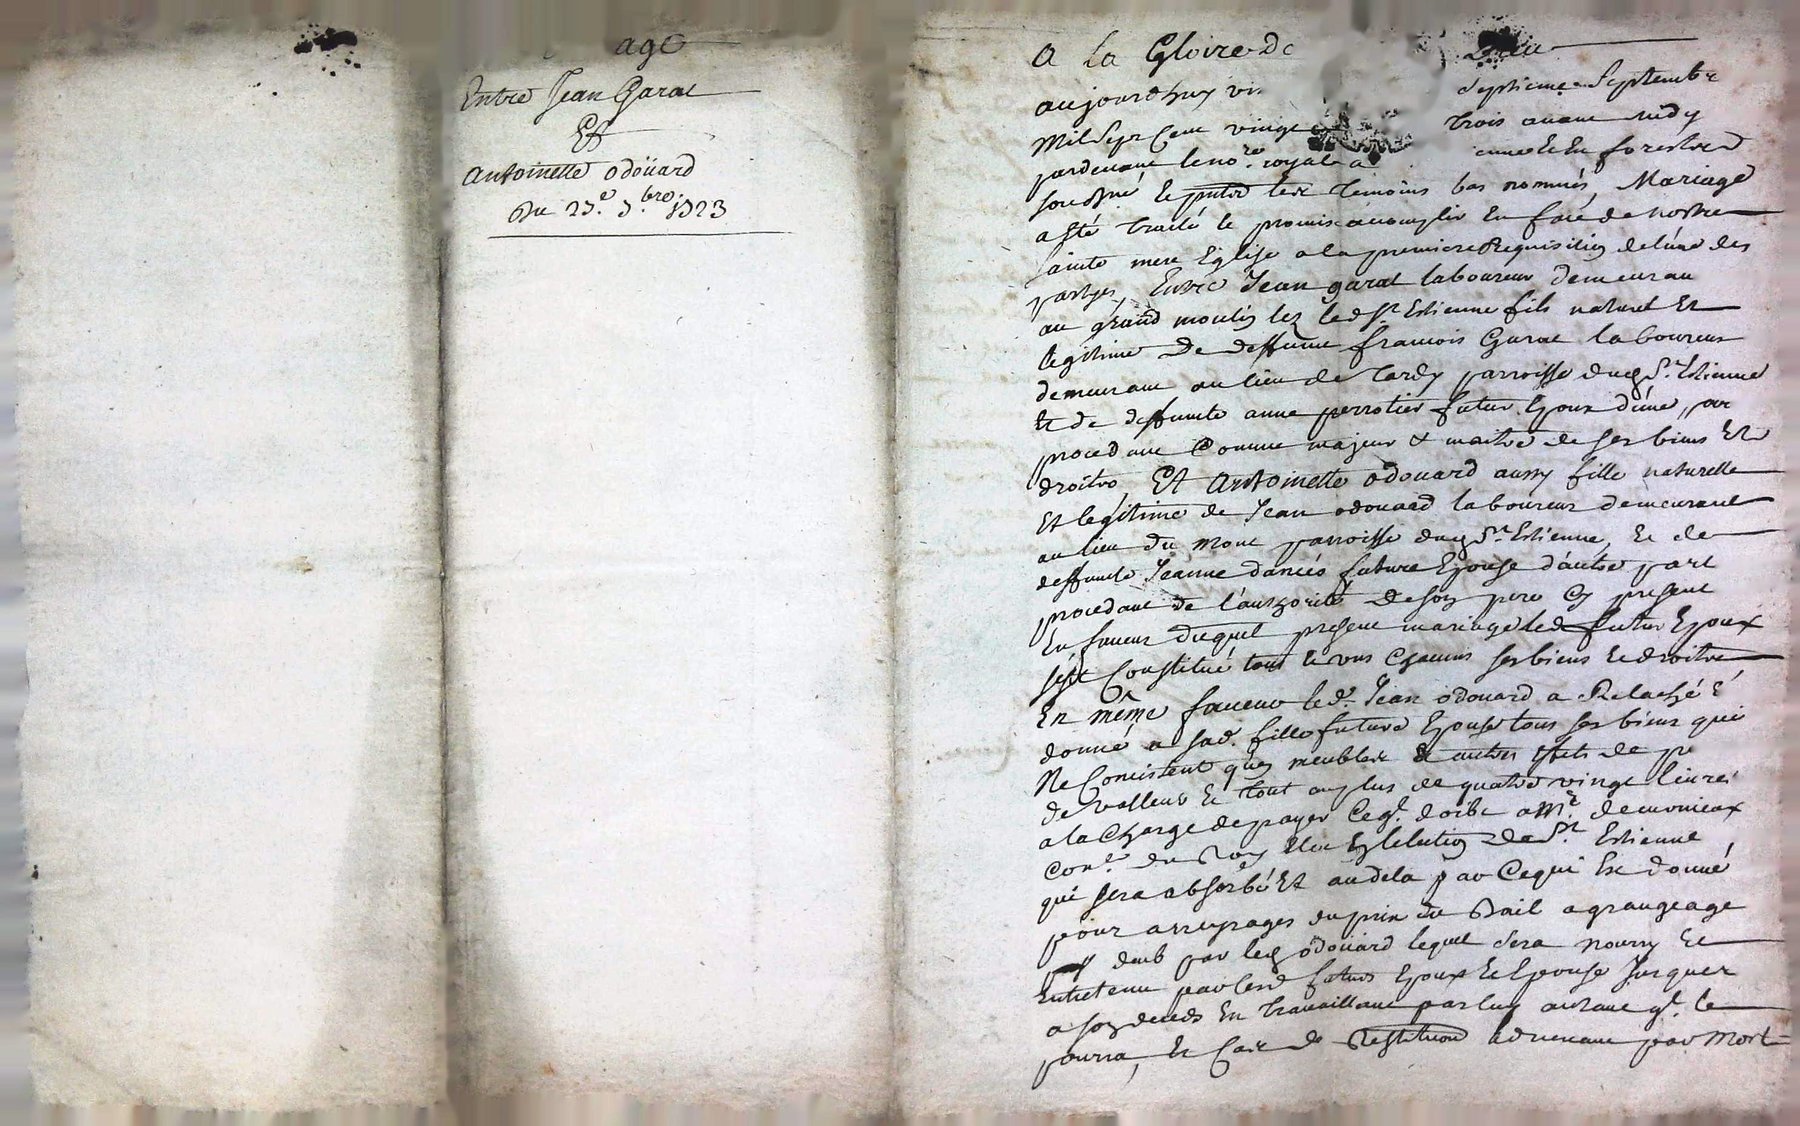 age
Entre Jean Garat
Et
Antoinette odoüard
Du 27.e 7.bre 1723
A La Gloire de Dieu
aujourdhuy vin septieme Septembre
Mil Sept Cent vingt trois avant midy
pardevant le no.re royal a en forest
soussigné Et présent les temoins bas nommés, Mariage
a esté traité le promis accomplir En face de nostre
sainte mere Eglise a la premiere Requisition de lune des
partyes, Entre Jean garat laboureur demeurau
au grand moulin lez led St Estienne fils naturel Et
legitime De deffunt francois Garat laboureur
demeurant au lieu de Tardy parroisse dud St. Estienne
Et de deffunte anne perrotier futur Epoux dune par
procedant Comme majeur & maitre de ses biens Et
droitz Et Antoinette odouard aussy fille naturelle
Et legitime de Jean odouard laboureur demeurant
au lieu du mont parroisse dud St. Estienne, Et de
deffunte Jeanne dancés future Epouse d'autre part
procedant de l'authorité De son pere Cy present
En faveur duquel present mariage led futur Epoux
s'est Constitué tous Et uns chacuns ses biens Et droitz
En même faveur led. Jean odouard a Relaché &
donné a sad. fille future Epouse tous ses biens qui
Ne Consistent qu'en meubles & autres effets de p
de valleur Et tout au plus de quatre vingt livres
a la Charge de payer Ce ql. doibt a Mr. demonieax
Con.r du Roy En Eslection de St. Estienne
qui sera absorbé Et audela par Ce qui Est donné
pour arreyrages du prix du Bail a grangeage
deub par led odouard lequel sera nourry Et
Entretenu par lesd futurs Epoux Et Epouse Jusques
a son deceds En travaillant par luy autant ql. le
pourra, Et Cas de Restitution advenant par Mort